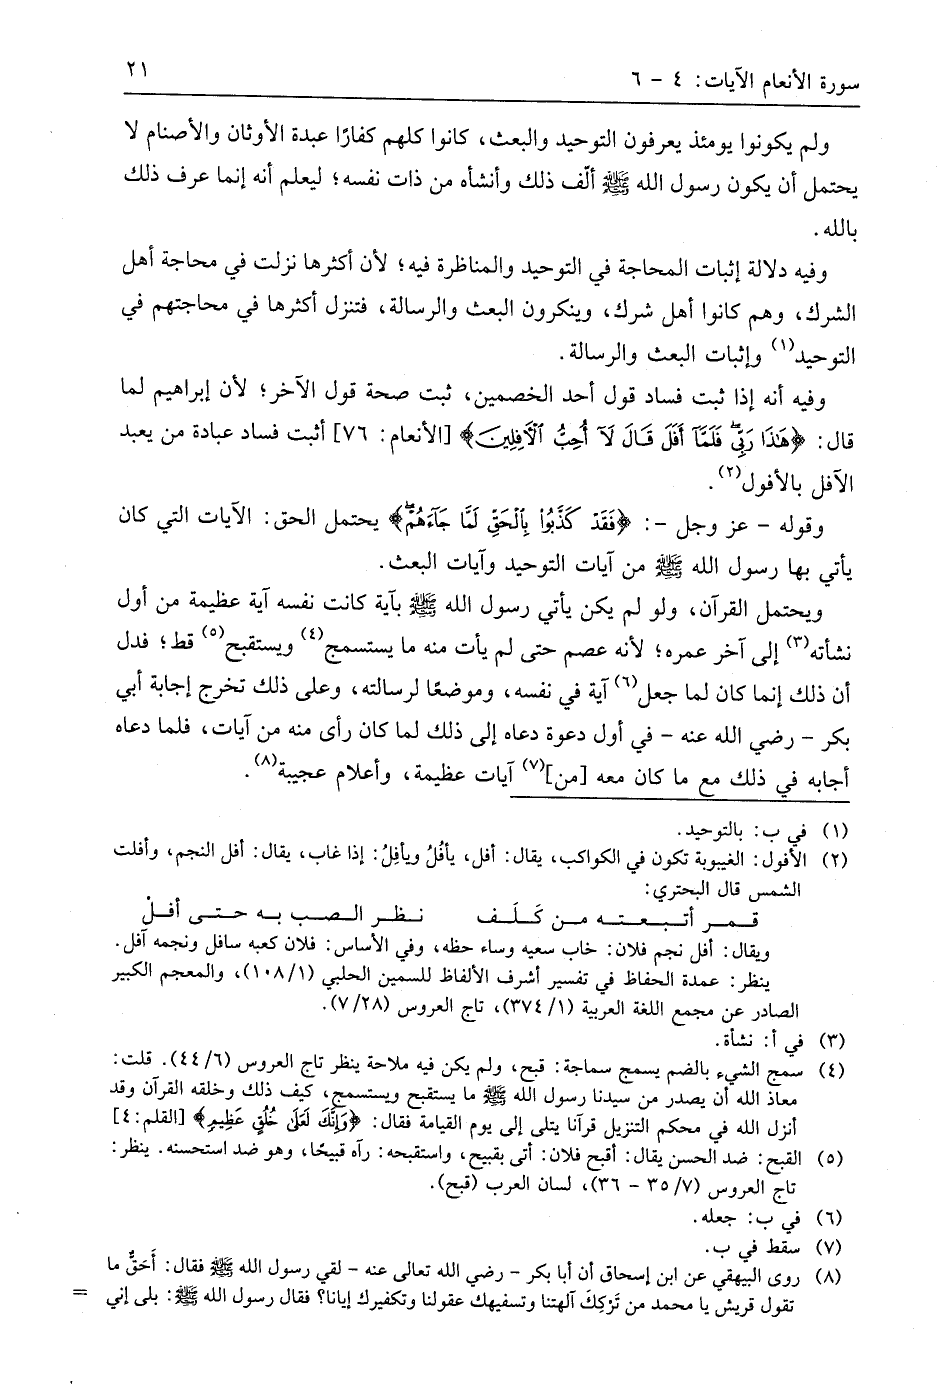 سورة الأنعام الآيات: ٤ - ٦
٢١
ولم يكونوا يومئذ يعرفون التوحيد والبعث، كانوا كلهم كفارًا عبدة الأوثان والأصنام لا
يحتمل أن يكون رسول الله ﷺ ألّف ذلك وأنشأه من ذات نفسه؛ ليعلم أنه إنما عرف ذلك
بالله.
وفيه دلالة إثبات المحاجة في التوحيد والمناظرة فيه؛ لأن أكثرها نزلت في محاجة أهل
الشرك، وهم كانوا أهل شرك، وينكرون البعث والرسالة، فتنزل أكثرها في محاجتهم في
التوحيد(١) وإثبات البعث والرسالة.
وفيه أنه إذا ثبت فساد قول أحد الخصمين، ثبت صحة قول الآخر؛ لأن إبراهيم لما
قال: ﴿هَٰذَا رَبِّيۖ فَلَمَّآ أَفَلَ قَالَ لَآ أُحِبُّ ٱلْأٓفِلِينَ﴾ [الأنعام: ٧٦] أثبت فساد عبادة من يعبد
الآفل بالأفول(٢).
وقوله - عز وجل -: ﴿فَقَدْ كَذَّبُوا۟ بِٱلْحَقِّ لَمَّا جَآءَهُمْۖ﴾ يحتمل الحق: الآيات التي كان
يأتي بها رسول الله ﷺ من آيات التوحيد وآيات البعث.
ويحتمل القرآن، ولو لم يكن يأتي رسول الله ﷺ بآية كانت نفسه آية عظيمة من أول
نشأته(٣) إلى آخر عمره؛ لأنه عصم حتى لم يأت منه ما يستسمج(٤) ويستقبح(٥) قط؛ فدل
أن ذلك إنما كان لما جعل(٦) آية في نفسه، وموضعًا لرسالته، وعلى ذلك تخرج إجابة أبي
بكر - رضي الله عنه - في أول دعوة دعاه إلى ذلك لما كان رأى منه من آيات، فلما دعاه
أجابه في ذلك مع ما كان معه [من](٧) آيات عظيمة، وأعلام عجيبة(٨).
(١) في ب: بالتوحيد.
(٢) الأفول: الغيبوبة تكون في الكواكب، يقال: أفل، يأفُلُ ويأفِلُ: إذا غاب، يقال: أفل النجم، وأفلت
الشمس قال البحتري:
قمر أتبعته من كَلَف نظر الصب به حتى أفلْ
ويقال: أفل نجم فلان: خاب سعيه وساء حظه، وفي الأساس: فلان كعبه سافل ونجمه آفل.
ينظر: عمدة الحفاظ في تفسير أشرف الألفاظ للسمين الحلبي (١/ ١٠٨)، والمعجم الكبير
الصادر عن مجمع اللغة العربية (١/ ٣٧٤)، تاج العروس (٢٨/ ٧).
(٣) في أ: نشأة.
(٤) سمج الشيء بالضم يسمج سماجة: قبح، ولم يكن فيه ملاحة ينظر تاج العروس (٦/ ٤٤). قلت:
معاذ الله أن يصدر من سيدنا رسول الله ﷺ ما يستقبح ويستسمج، كيف ذلك وخلقه القرآن وقد
أنزل الله في محكم التنزيل قرآنا يتلى إلى يوم القيامة فقال: ﴿وَإِنَّكَ لَعَلَىٰ خُلُقٍ عَظِيمٍ﴾ [القلم: ٤]
(٥) القبح: ضد الحسن يقال: أقبح فلان: أتى بقبيح، واستقبحه: رآه قبيحًا، وهو ضد استحسنه. ينظر:
تاج العروس (٧/ ٣٥ - ٣٦)، لسان العرب (قبح).
(٦) في ب: جعله.
(٧) سقط في ب.
(٨) روى البيهقي عن ابن إسحاق أن أبا بكر - رضي الله تعالى عنه - لقي رسول الله ﷺ فقال: أَحَقٌّ ما
تقول قريش يا محمد من تَرْكِكَ آلهتنا وتسفيهك عقولنا وتكفيرك إيانا؟ فقال رسول الله ﷺ: بلى إني =